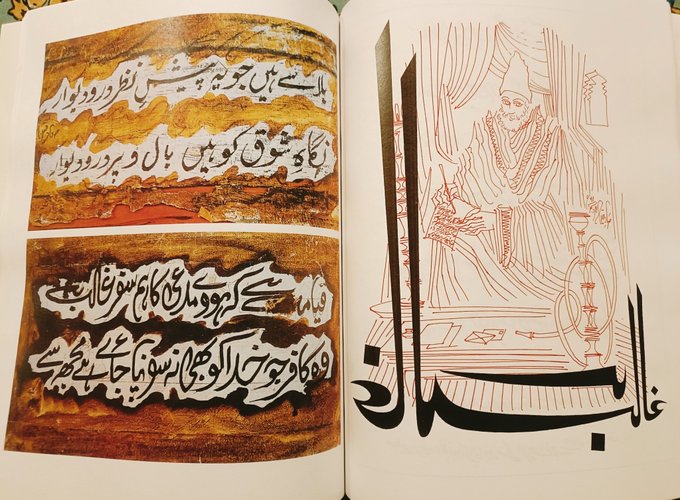 بلا سے ہیں جو یہ پیشِ نظر در و دیوار
نگاہِ شوق کو ہیں بال و پر در و دیوار
قیامت ہے کہ ہووے مدعی کا ہم سفر غالب
وہ کافر جو خدا کو بھی نہ سونپا جائے ہے مجھ سے
غالب